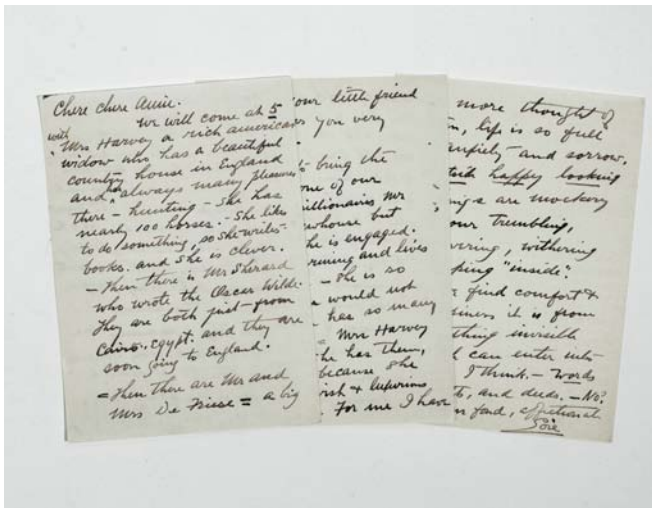 Chere chere Amie.
We will come at 5
with
Mrs Harvey a rich american
widow who has a beautiful
country house in England
and always many pleasures
there – hunting – She has
nearly 100 horses. – She likes
to do something, so she writes –
books. and she is clever.
– Then there is Mr Sherard
who wrote the Oscar Wilde.
They are both just – from
Cairo. egypt. and they are
soon going to England.
= Then there are Mr and
Mrs De = a big
our little friend
you very
bring the
one of our
illionaires Mr
whouse but
he is engaged.
and lives
– She is so
would not
has so many
= Mrs Harvey
he has them,
because she
ish & luxurious.
For me I have
more thought of
life is so full
and sorrow.
happy looking
ngs are mockery
our trembling,
vering, withering
ping "inside".
find comfort &
iness it is from
thing invisible
l can enter into
I think. – words
and deeds. – No?
fond, affectionate